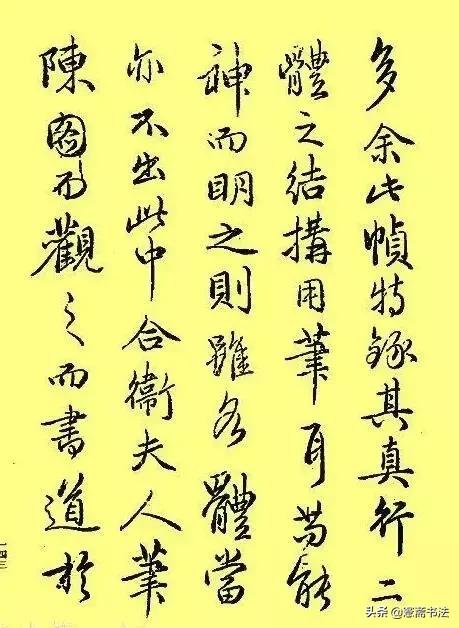 多余此幀特錄其真行二
體之結構用筆耳苟能
神而明之則雖各體當
亦不出此中合衞夫人筆
陳圖而觀之而書道於
一四三
头条@騫斋书法